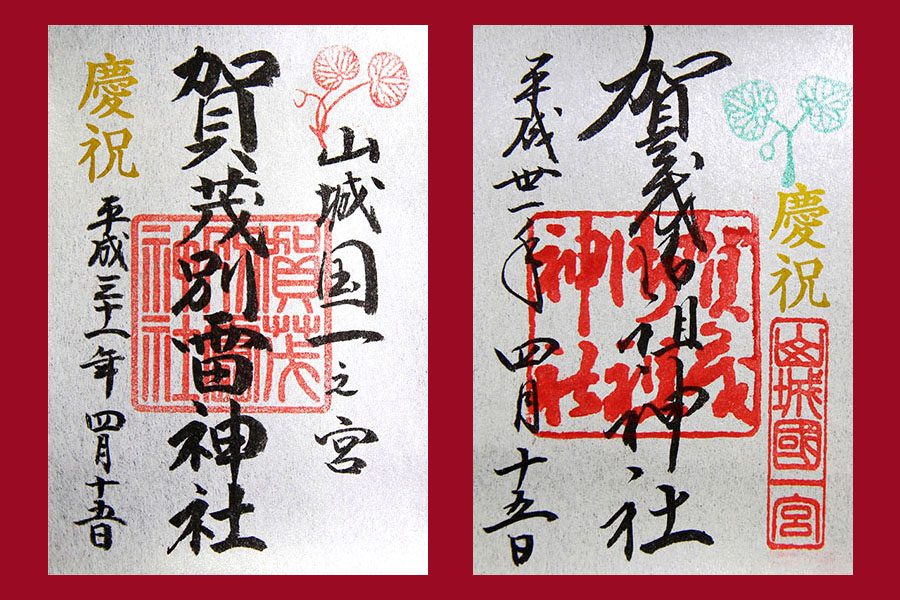 山城国一之宮
賀茂別雷神社
賀茂別雷神社
慶祝
平成三十一年 四月十五日
慶祝
山城國一宮
賀茂御祖神社
賀茂御祖神社
平成丗一年 四月十五日